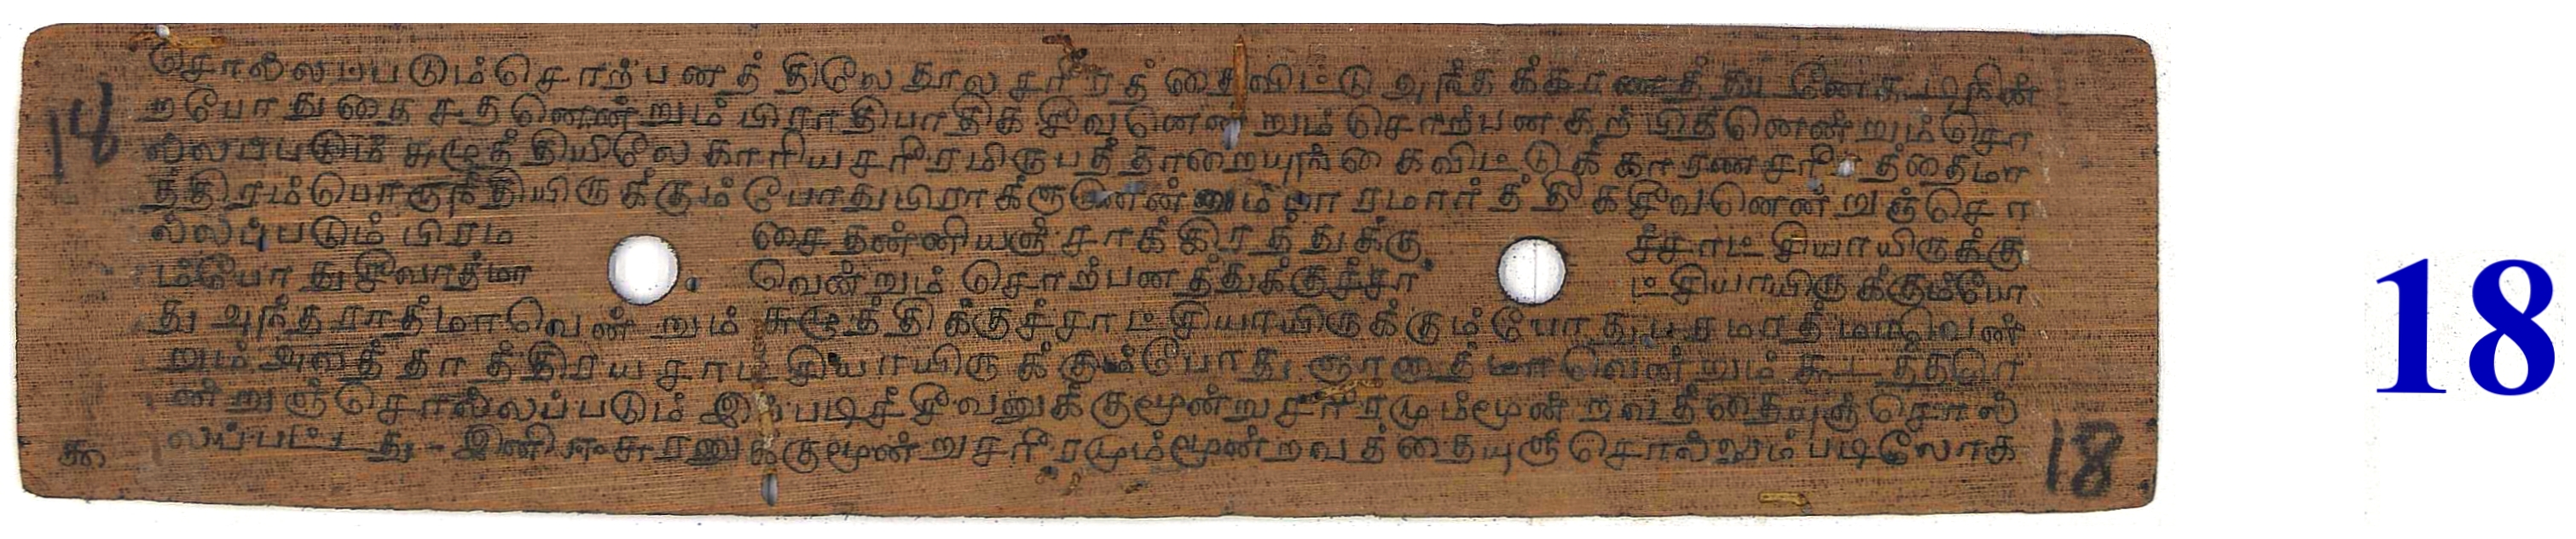 சொல்லப்படும் சொற்பனத்திலே தூல சரீரத்தைவிட்டு அந்தக்கரணத்துடனேகூடியுகின்
றபோது தைசதனென்றும் பிராதிபாதிக சீவனென்றும் சொற்பன கற்பிதனென்றும் சொ
ல்லப்படும் சுழுத்தியிலே காரிய சரீரமிருபத்தாறையுங் கைவிட்டுக் காரண சரீரத்தைமா
த்திரம் பொருந்தியிருக்கும் போது பிராக்ஞனென்றும் பாரமார்த்திக சீவனென்றுஞ் சொ
ல்லப்படும் பிரம சைதன்னியஞ் சாக்கிரத்துக்கு ச்சாட்சியாயிருக்கு
ம்போது சீவாத்மா வென்றும் சொற்பனத்துக்குச்சா ட்சியாயிருக்கும்போ
து அந்தராத்மாவென்றும் சுழுத்திக்குச்சாட்சியாயிருக்கும் போது பரமாத்மாவென்
றும் அவத்தாத்திரய சாட்சியாயிருக்கும்போது ஞானாத்மாவென்றும் கூடத்தனெ
ன்றுஞ் சொல்லப்படும் இப்படிச் சீவனுக்கு மூன்று சரீரமும் மூன்றவத்தையுஞ் சொல்
லப்பட்டது - இனி ஈசுரனுக்கு மூன்று சரீரமும் மூன்றவத்தையுஞ் சொல்லும்படி லோக
18
18